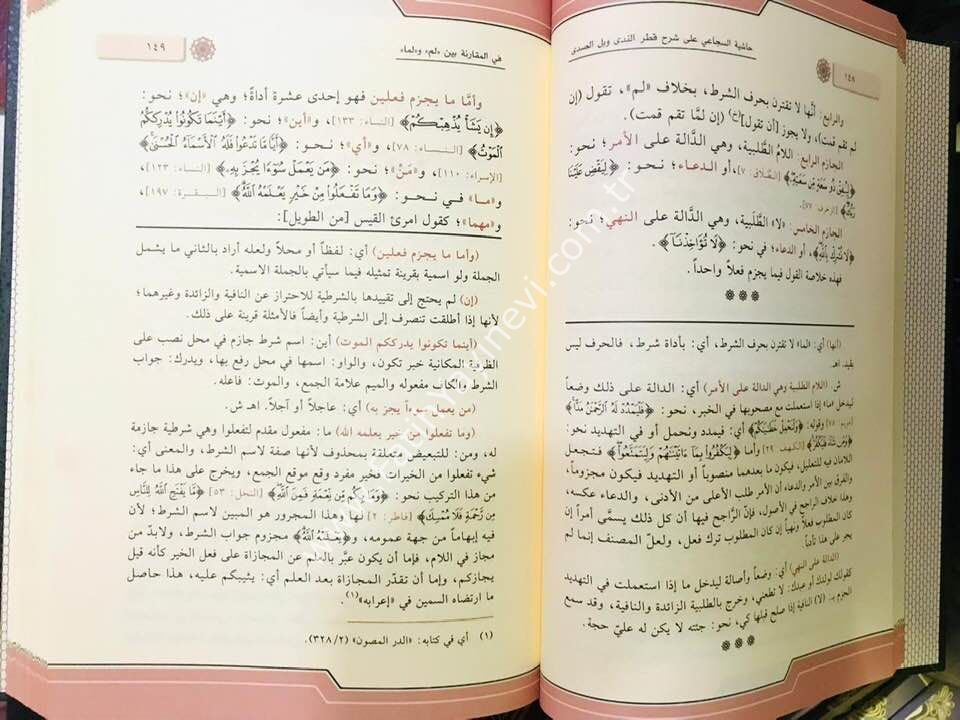 حاشية السجاعي على شرح قطر الندى وبل الصدى
١٤٨
والرابع: أنها لا تقترن بحرف الشرط، بخلاف «لم»، تقول (إن
لم تقم قمت)، ولا يجوز [أن تقول](خ) (إن لمّا تقم قمت).
الجازم الرابع: اللامُ الطلبية، وهي الدالة على الأمر؛ نحو:
﴿لِيُنفِقْ ذُو سَعَةٍ مِّن سَعَتِهِ﴾ [الطلاق: ٧]، أو الدعاء؛ نحو: ﴿لِيَقْضِ عَلَيْنَا
رَبُّكَ﴾ [الزخرف: ٧٧].
الجازم الخامس: «لا» الطَّلبية، وهي الدالة على النهي؛ نحو:
﴿لَا تُشْرِكْ بِاللَّهِ﴾، أو الدعاء؛ في نحو: ﴿لَا تُؤَاخِذْنَا﴾.
فهذه خلاصة القول فيما يجزم فعلاً واحداً.
(أنها) أي: «لما» لا تقترن بحرف الشرط، أي: بأداة شرط، فالحرف ليس
بقيد. اهـ.
ش. (اللام الطلبية وهي الدالة على الأمر) أي: الدالة على ذلك وضعاً
ليدخل «ما» إذا استعملت مع مصحوبها في الخبر، نحو: ﴿فَلْيَمْدُدْ لَهُ الرَّحْمَنُ مَدًّا﴾
[مريم: ٧٥] وقوله: ﴿وَلْنَحْمِلْ خَطَايَاكُمْ﴾ أي: فيمدد ونحمل أو في التهديد نحو:
﴿وَمَن شَاءَ فَلْيَكْفُرْ﴾ [الكهف: ٢٩] وأما ﴿لِيَكْفُرُوا بِمَا آتَيْنَاهُمْ وَلِيَتَمَتَّعُوا﴾ فتجعل
اللامان فيه للتعليل، فيكون ما بعدهما منصوباً أو التهديد فيكون مجزوماً،
والفرق بين الأمر والدعاء أن الأمر طلب الأعلى من الأدنى، والدعاء عكسه،
وهذا خلاف الراجح في الأصول، فإن الرَّاجح فيها أن كل ذلك يسمَّى أمراً إن
كان المطلوب فعلاً ونهياً إن كان المطلوب ترك فعل، ولعلّ المصنف إنما لم
يجر على هذا تأدباً.
(الدالة على النهي) أي: وضعاً وأصالة ليدخل ما إذا استعملت في التهديد
كقولك لولدك أو عبدك: لا تطعني، وخرج بالطلبية الزائدة والنافية، وقد سمع
الجزم بـ (لا) النافية إذا صلح قبلها كي، نحو: جئته لا يكن له عليّ حجة.
في المقارنة بين «لم» و«لما»
١٤٩
وأمَّا ما يجزم فعلين فهو إحدى عشرة أداةً؛ وهي «إن»؛ نحو:
﴿إِن يَشَأْ يُذْهِبْكُمْ﴾ [النساء: ١٣٣]، و«أين»؛ نحو: ﴿أَيْنَمَا تَكُونُوا يُدْرِككُّمُ
الْمَوْتُ﴾ [النساء: ٧٨]، و«أي»؛ نحو: ﴿أَيًّا مَّا تَدْعُوا فَلَهُ الْأَسْمَاءُ الْحُسْنَى﴾
[الإسراء: ١١٠]، و«مَنْ»؛ نحو: ﴿مَن يَعْمَلْ سُوءًا يُجْزَ بِهِ﴾ [النساء: ١٢٣]،
و«ما» في نحو: ﴿وَمَا تَفْعَلُوا مِنْ خَيْرٍ يَعْلَمْهُ اللَّهُ﴾ [البقرة: ١٩٧]،
و«مهما»؛ كقول امرئ القيس [من الطويل]:
(وأما ما يجزم فعلين) أي: لفظاً أو محلاً ولعله أراد بالثاني ما يشمل
الجملة ولو اسمية بقرينة تمثيله فيما سيأتي بالجملة الاسمية.
(إن) لم يحتج إلى تقييدها بالشرطية للاحتراز عن النافية والزائدة وغيرهما؛
لأنها إذا أطلقت تنصرف إلى الشرطية وأيضاً فالأمثلة قرينة على ذلك.
(أينما تكونوا يدرككم الموت) أين: اسم شرط جازم في محل نصب على
الظرفية المكانية خبر تكون، والواو: اسمها في محل رفع بها، ويدرك: جواب
الشرط والكاف مفعوله والميم علامة الجمع، والموت: فاعله.
(من يعمل سوءاً يجز به) أي: عاجلاً أو آجلاً. اهـ ش.
(وما تفعلوا من خير يعلمه الله) ما: مفعول مقدم لتفعلوا وهي شرطية جازمة
له، ومن: للتبعيض متعلقة بمحذوف لأنها صفة لاسم الشرط، والمعنى أي:
شيء تفعلوا من الخيرات فخير مفرد وقع موقع الجمع، ويخرج على هذا ما جاء
من هذا التركيب نحو: ﴿وَمَا بِكُم مِّن نِّعْمَةٍ فَمِنَ اللَّهِ﴾ [النحل: ٥٣] ﴿مَّا يَفْتَحِ اللَّهُ لِلنَّاسِ
مِن رَّحْمَةٍ فَلَا مُمْسِكَ﴾ [فاطر: ٢] لها وهذا المجرور هو المبين لاسم الشرط؛ لأن
فيه إبهاماً من جهة عمومه، و﴿يَعْلَمْهُ اللَّهُ﴾ مجزوم جواب الشرط، ولابدّ من
مجاز في اللام، فإما أن يكون عبَّر بالعلم عن المجازاة على فعل الخير كأنه قيل
يجازكم، وإما أن تقدّر المجازاة بعد العلم أي: يثيبكم عليه، هذا حاصل
ما ارتضاه السمين في «إعرابه»(١).
(١) أي في كتابه: «الدر المصون» (٣٢٨/٢).